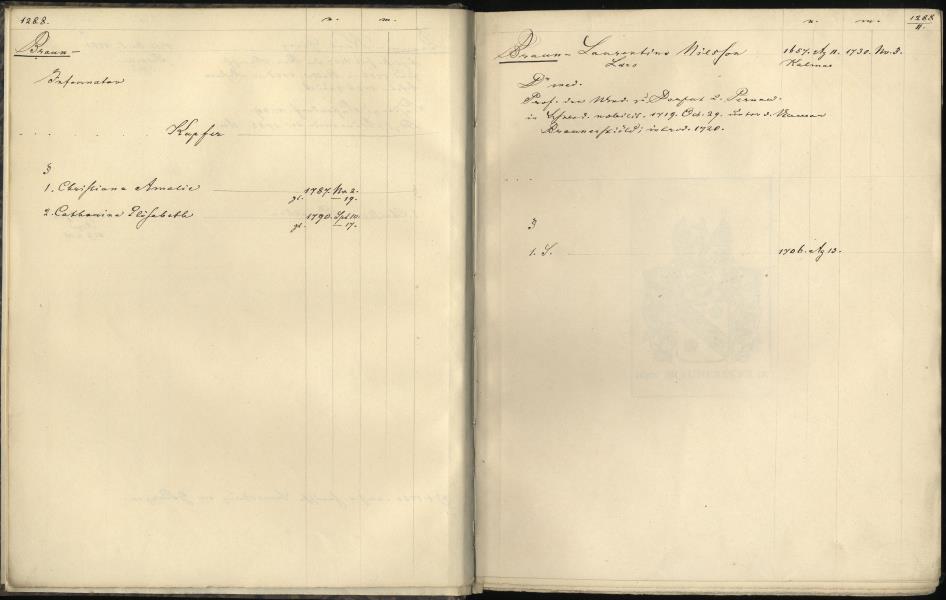 1288. n. m.
Braun-
Informator
Kupfer
§
1. Christiana Amalie 1787. Nv. 2.
gt. — 19.
2. Catharina Elisabeth 1790. Spt. 10.
gt. — 17.
n. m. 1288/II.
Braun- Laurentius Nilsson 1657. Ag 11. 1730. Nv. 3.
Lars Kalmar
Dr med.
Prof. der Med. zu Dorpat u. Pernau.
in Schwed. nobilit. 1719. Oct. 29. unter d. Namen
Braunerskiöld; introd. 1720.
§
1. S. 1706. Ag 13.